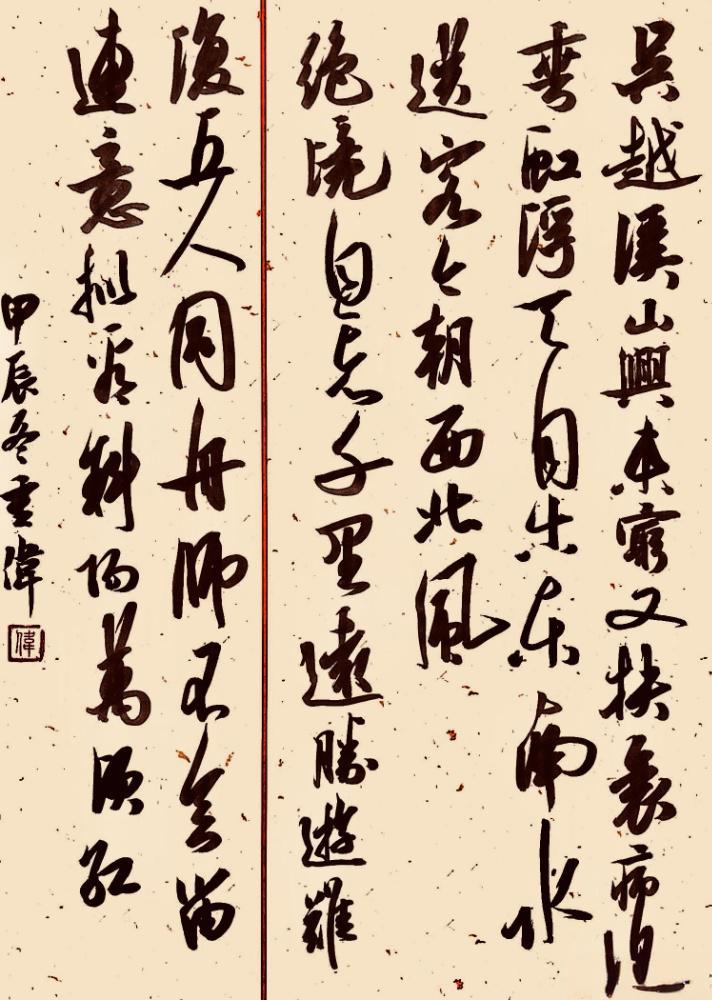 吳越溪山興未窮又扶衰病過
垂虹浮天自古東南水
送客今朝西北風
絕境自忘千里遠勝遊難
復五人同舟師不會留
連意擬看斜陽萬頃紅
甲辰冬雲偉
偉